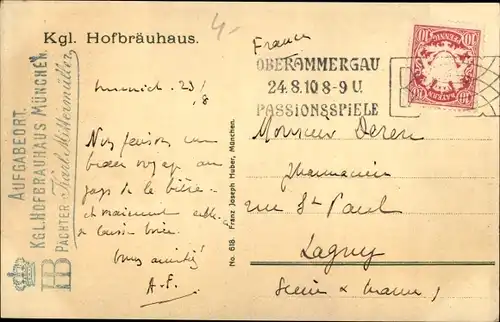 4-
Kgl. Hofbräuhaus.
AUFGABEORT.
KGL. HOFBRÄUHAUS MÜNCHEN.
PÄCHTER Karl Mittermüller
HB
Munich. 23/8
Nous faisons un
beau voyage au
pays de la bière
et maintenant
boire
amitiés!
A-F.
No. 618. Franz Joseph Huber, München.
France
OBERAMMERGAU
24.8.10 8-9 U.
PASSIONSSPIELE
10 PFENNIG 10
BAYERN
Monsieur Deren
Pharmacien
rue St Paul
Lagny
Seine & Marne